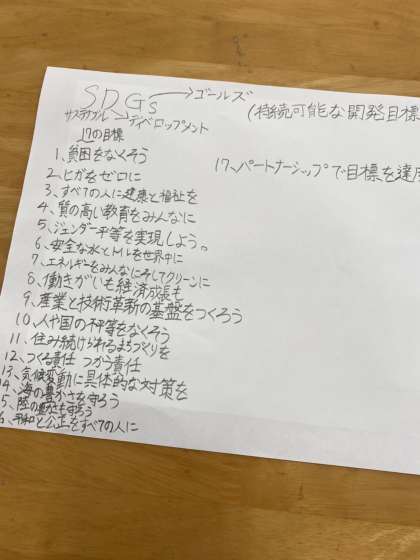 SDGs→ゴールズ
(持続可能な開発目標
サステナブル→ディベロップメント
17の目標
1、貧困をなくそう
2、ヒガをゼロに
3、すべての人に健康と福祉を
4、質の高い教育をみんなに
5、ジェンダー平等を実現しよう。
6、安全な水とトイレを世界中に
7、エネルギーをみんなにそしてクリーンに
8、働きがいも経済成長も
9、産業と技術革新の基盤をつくろう
10、人や国の不平等をなくそう
11、住み続けられるまちづくりを
12、つくる責任 つかう責任
13、気候変動に具体的な対策を
14、海の豊かさを守ろう
5、陸の豊かさも守ろう
6、平和と公正をすべての人に
17、パートナーシップで目標を達成